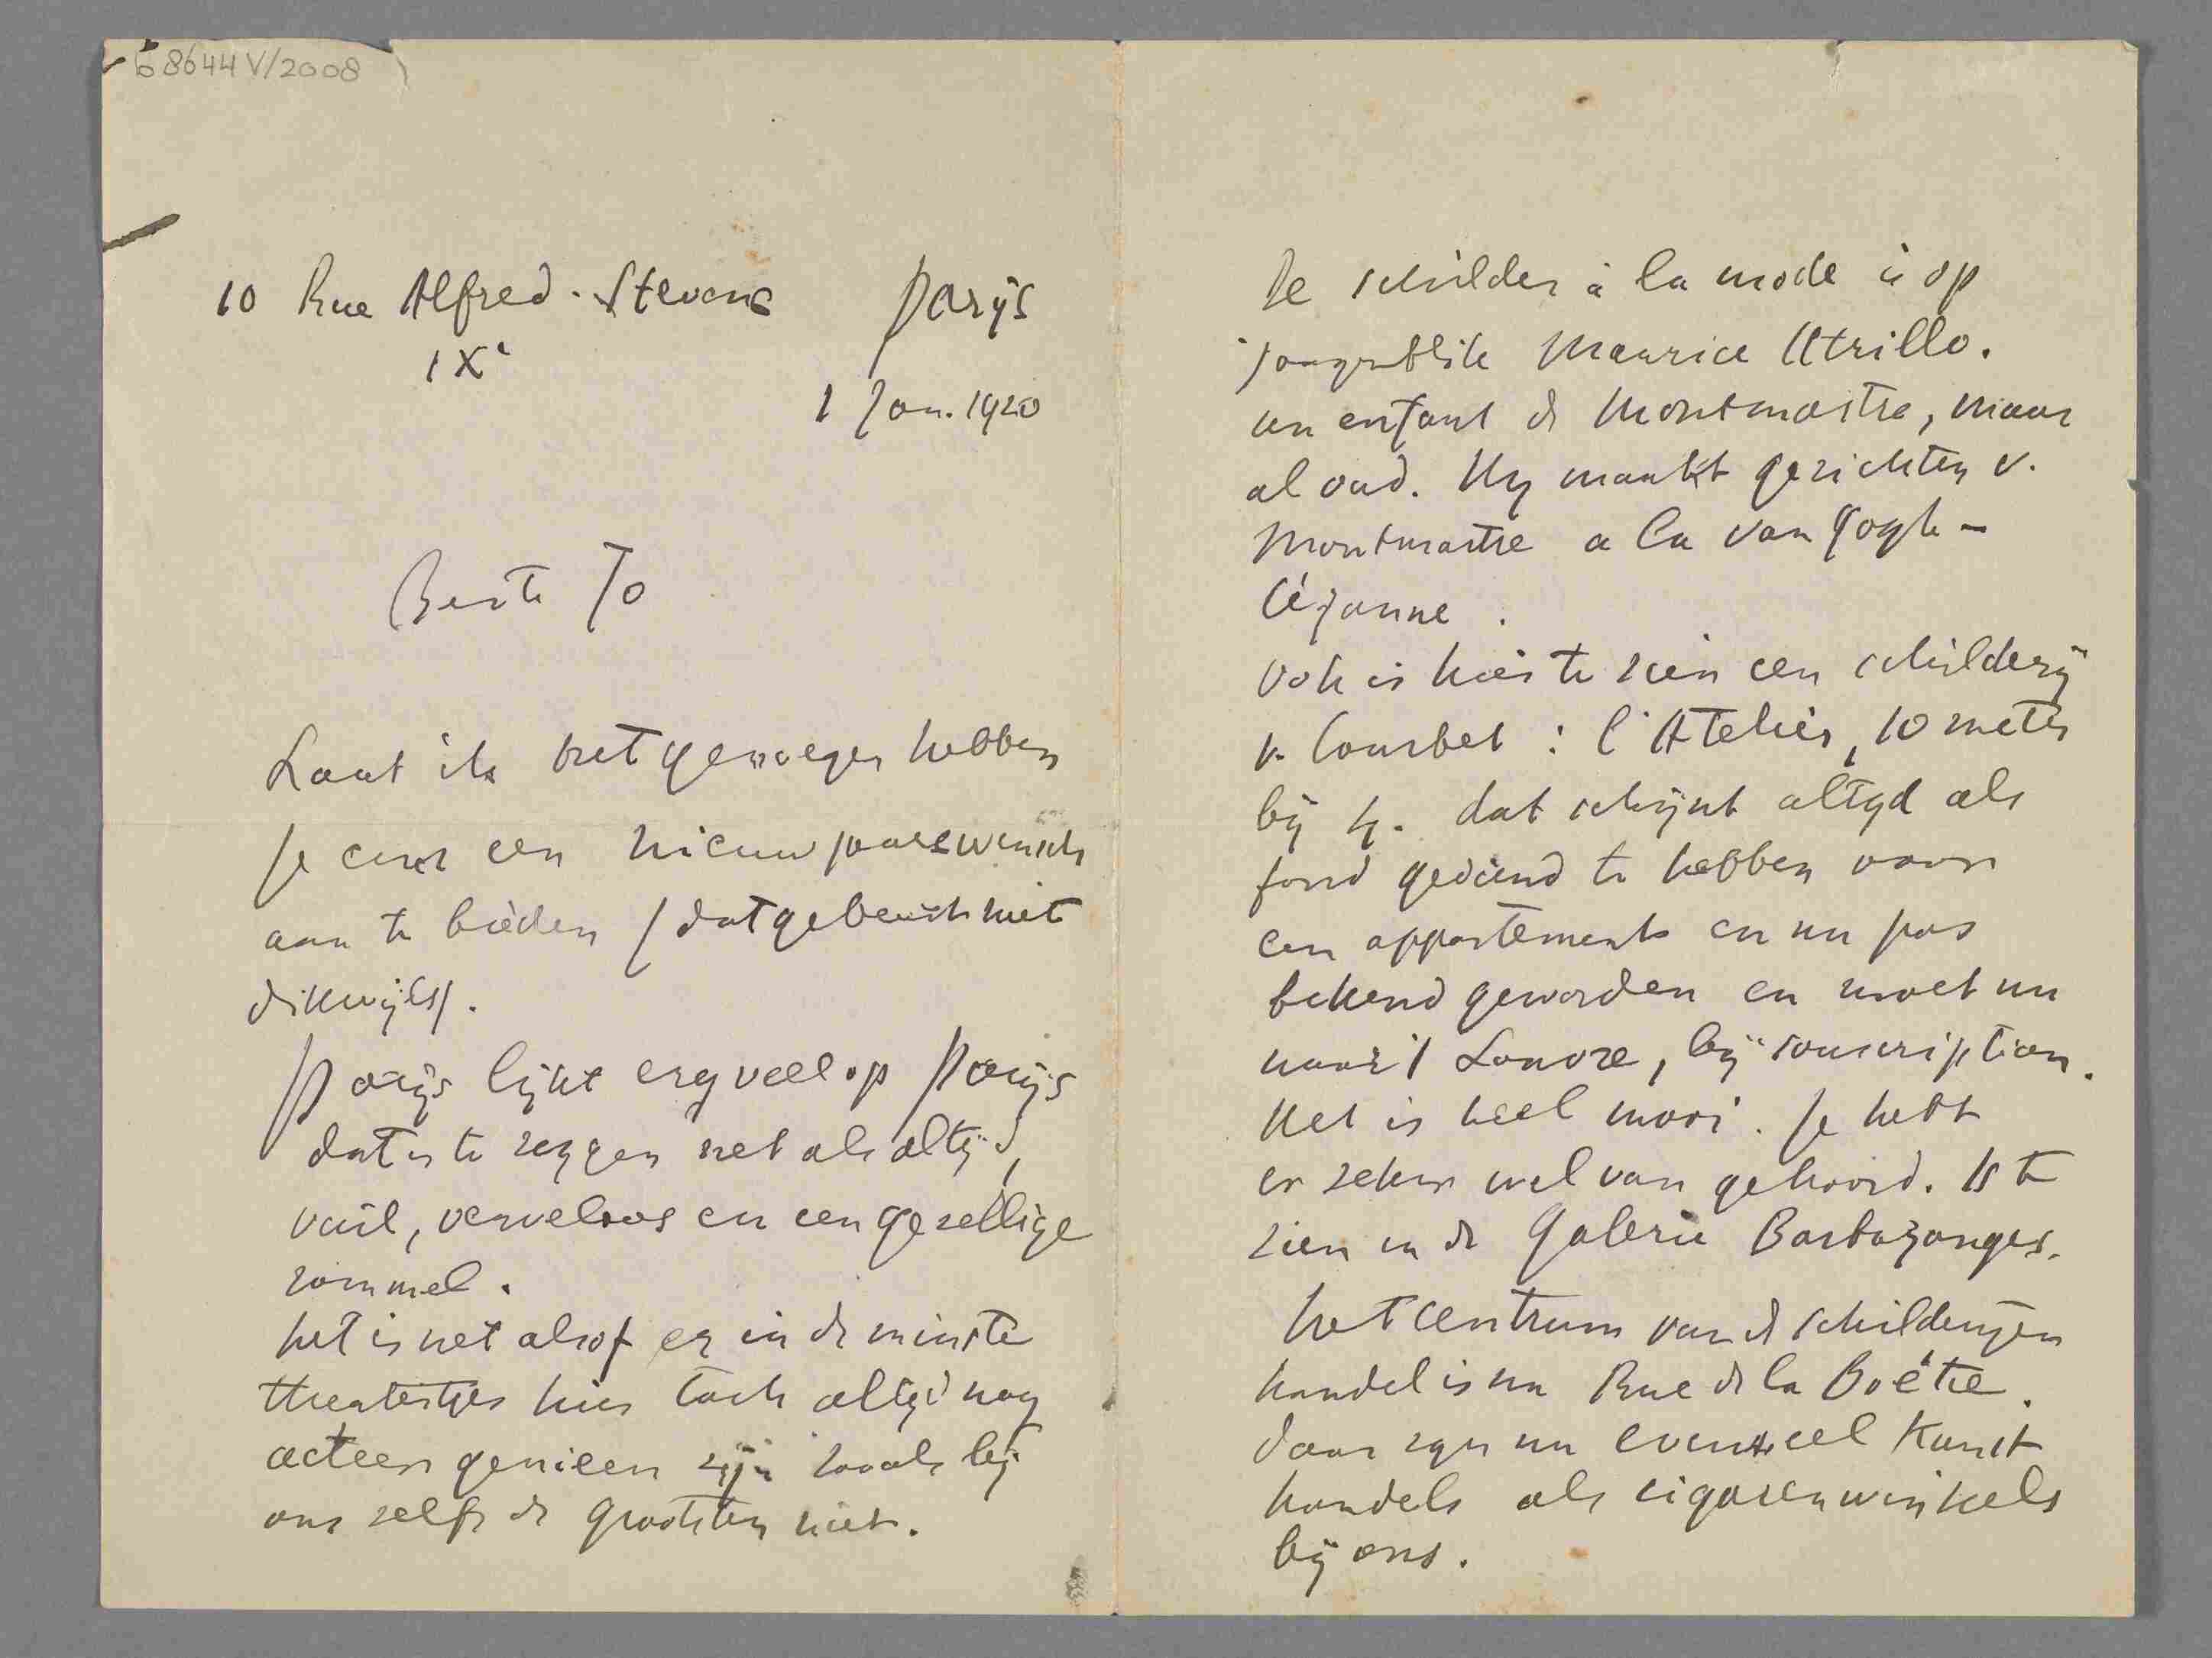 b 8644 V/2008
10 Rue Alfred-Stevens Parijs
IXe
1 Jan. 1920
Beste Jo
Laat ik het genoegen hebben
je eens een nieuwjaarswensch
aan te bieden (dat gebeurt niet
dikwijls).
Parijs lijkt erg veel op Parijs
dat is te zeggen net als altijd,
vuil, verveloos en een gezellige
rommel.
het is net alsof er in de minste
theatertjes hier toch altijd nog
acteer genieen zijn zooals bij
ons zelfs de grootsten niet.
De schilder à la mode is op
't oogenblik Maurice Utrillo.
un enfant de Montmartre, maar
al oud. Hij maakt gezichten v.
Montmartre a la van Gogh-
Cézanne.
Ook is hier te zien een schilderij
v. Courbet : l'Atelier, 10 meter
bij 4. dat schijnt altijd als
fond gediend te hebben voor
een appartement en nu pas
bekend geworden en moet nu
naar 't Louvre, bij souscription.
Het is heel mooi. Je hebt
er zeker wel van gehoord. Is te
zien in de Galerie Barbazanges.
het centrum van de schilderijen
handel is nu Rue de la Boëtie.
daar zijn nu evenveel kunst
handels als sigarenwinkels
bij ons.